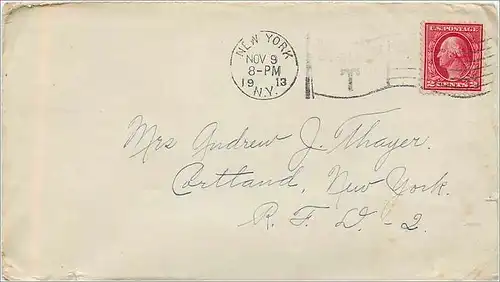 NEW YORK
NOV 9
8-PM
19 13
N.Y.
T
U.S. POSTAGE
2 CENTS 2
Mrs Andrew J. Thayer.
Cortland, New York.
R. F. D - 2.